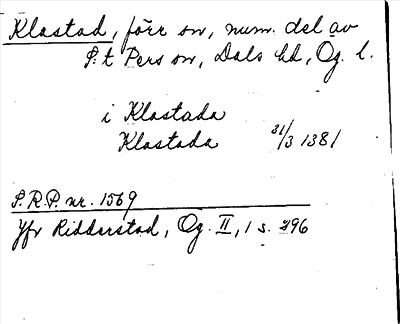 Klastad, förr sn, num. del av
S:t Pers sn, Dals hd, Ög. l.
i Klastada
Klastada 31/3 1381
S.R.P. nr. 1569
Jfr Ridderstad, Ög. II, 1 s. 296